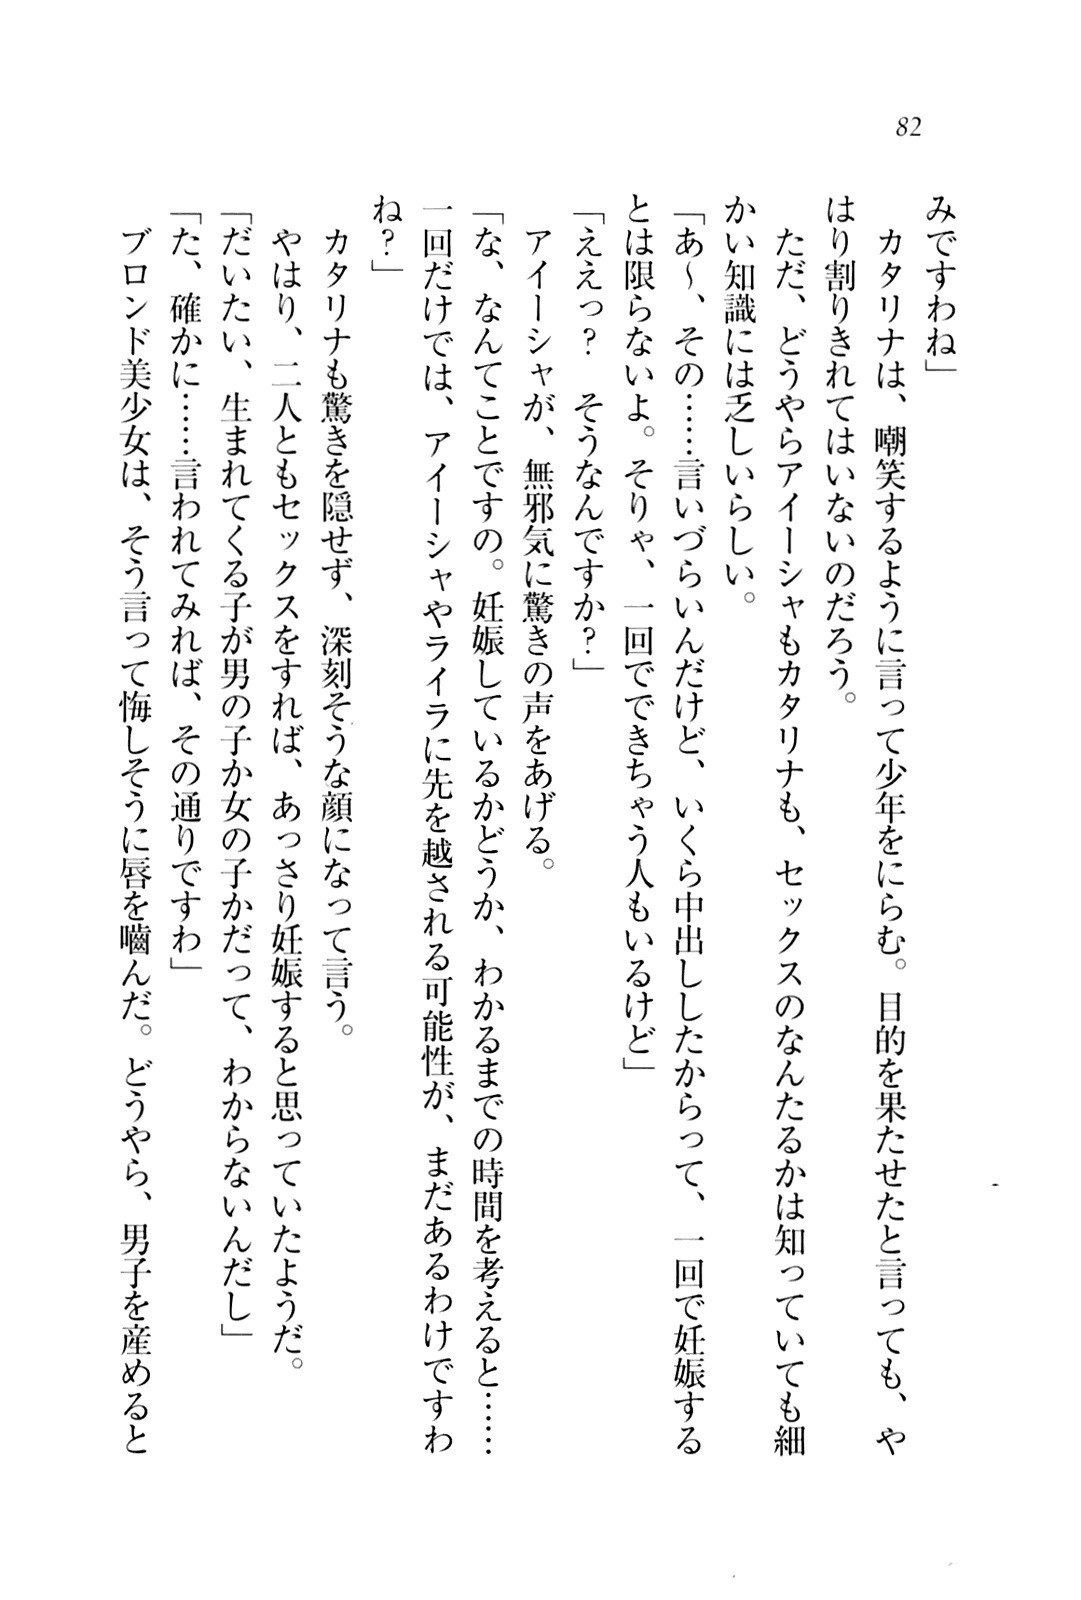 82
みですわね」
カタリナは、嘲笑するように言って少年をにらむ。目的を果たせたと言っても、や
はり割りきれてはいないのだろう。
ただ、どうやらアイーシャもカタリナも、セックスのなんたるかは知っていても細
かい知識には乏しいらしい。
「あ〜、その……言いづらいんだけど、いくら中出ししたからって、一回で妊娠する
とは限らないよ。そりゃ、一回でできちゃう人もいるけど」
「ええっ？　そうなんですか？」
アイーシャが、無邪気に驚きの声をあげる。
「な、なんてことですの。妊娠しているかどうか、わかるまでの時間を考えると……
一回だけでは、アイーシャやライラに先を越される可能性が、まだあるわけですわ
ね？」
カタリナも驚きを隠せず、深刻そうな顔になって言う。
やはり、二人ともセックスをすれば、あっさり妊娠すると思っていたようだ。
「だいたい、生まれてくる子が男の子か女の子かだって、わからないんだし」
「た、確かに……言われてみれば、その通りですわ」
ブロンド美少女は、そう言って悔しそうに唇を嚙んだ。どうやら、男子を産めると